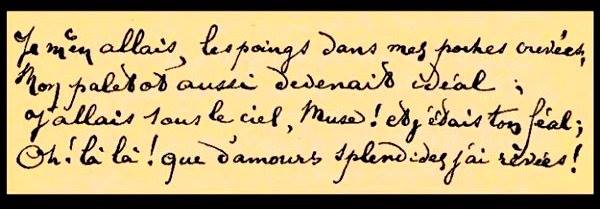 Je m'en allais, les poings dans mes poches crevées,
Mon paletot aussi devenait idéal ;
J'allais sous le ciel, Muse ! et j'étais ton féal ;
Oh ! là là ! que d'amours splendides j'ai rêvées !